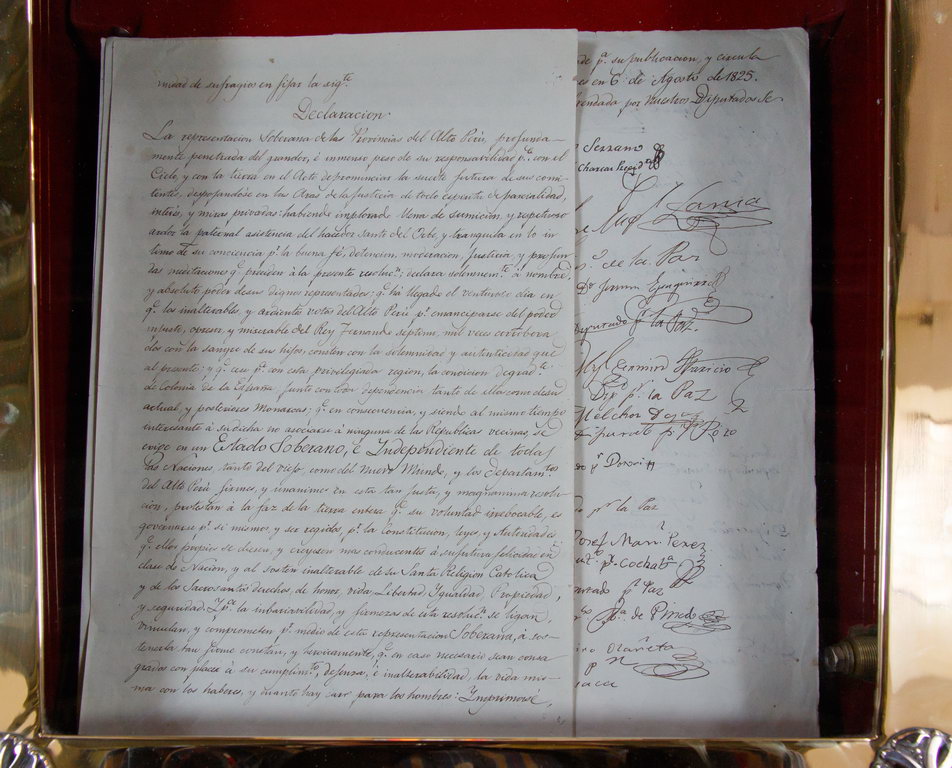 nidad de sufragios en fijar la sigte
Declaracion.
La representacion Soberana de las Provincias del Alto Perú, profunda-
mente penetrada del grandor, é inmenso peso de su responsabilidad pa. con el
Cielo, y con la tierra en el Acto de pronunciar la suerte futura de sus comi-
tentes, despojandose en las Aras de la justicia de todo espiritu de parcialidad,
interes, y miras privadas: habiendo implorado llena de sumicion, y respetuoso
ardor la paternal asistencia del hacedor Santo del Orbe, y tranquila en lo in-
timo de su conciencia pr. la buena fé, detencion, moderacion, Justicia y profun-
das meditaciones qe. preciden á la presente resolucn; declara solemnemte. á nombre,
y absoluto poder de sus dignos representados; qe. há llegado el venturoso dia en
qe. los inalterables, y ardientes votos del Alto Perú pr. emanciparse del poder
injusto, opresor, y miserable del Rey Fernando septimo, mil veces corrobora-
dos con la sangre de sus hijos, consten con la solemnidad y autenticidad que
al presente; y qe. cese pa. con esta privilegiada region, la condicion degradte.
de Colonia de la España, junto con toda dependencia tanto de ella como de su
actual, y posteriores Monarcas; qe. en consecuencia, y siendo al mismo tiempo
interesante á su dicha no asociarse á ninguna de las Republicas vecinas, se
erige en un Estado Soberano, é Independiente de todas
las Naciones, tanto del viejo, como del Nuevo Mundo, y los departamtos
del Alto Perú firmes, y unanimes en esta tan justa, y magnanima resolu-
cion, protestan á la faz de la tierra entera qe. su voluntad irrevocable, es
governarse pr. si mismos, y ser regidos, pr. la Constitucion, leyes, y Autoridades
qe. ellos propios se diesen, y creyesen mas conducentes á su futura felicidad en
clase de Nacion, y al sosten inalterable de su Santa Religion Catolica
y de los Sacrosantos derechos, de honor, vida, Libertad, Igualdad, Propiedad,
y seguridad. Y pa. la imbariabilidad, y firmeza de esta resolucn. se ligan,
vinculan, y comprometen pr. medio de esta representacion Soberana, á sos-
tenerla tan firme, constan, y heroicamente, qe. en caso necesario sean consa-
grados con placer á su cumplimto, defensa, é inalterabilidad, la vida mis-
ma con los haberes, y cuanto hay caro para los hombres: Imprimase,
de pa. su publicacion, y circula
es en 6 de Agosto de 1825.
frendada por nuestros Diputados Se-
Serrano
Charcas Presidte
Lanza
r. de la Paz
Dr. Jose
Diputado pr. la Paz.
Casimiro Aparicio
Dipdo pr. la Paz
Melchor Daza
Diputado pr. Potosi
pr. Potosi
pr. la Paz
Josef Manl. Perez
put. pr. Cochaba
putado pr. Paz
Ca. de Pinedo
ro Olañeta